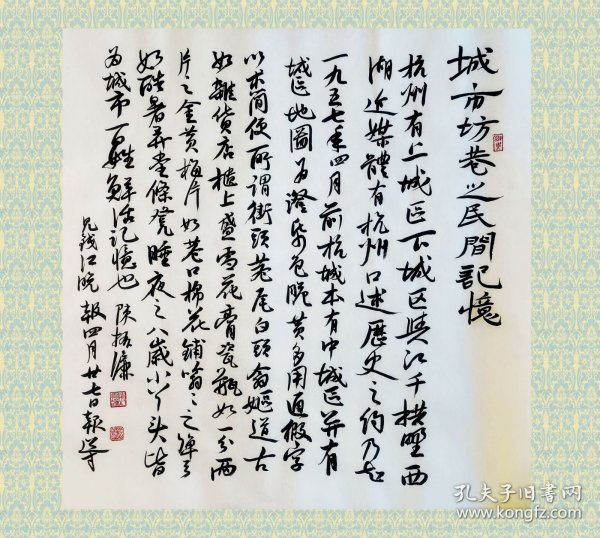 城市坊巷之民間記憶
杭州有上城區下城区與江干拱墅西
湖近媒體有杭州口述歷史之約乃知
一九五七年四月前杭城本有中城區并有
城區地圖為證紙色脆黄多用通假字
以求簡便所謂街頭巷尾白頭翁嫗道古
如雜貨店櫃上盛雪花膏瓷瓶如一分两
片之金黄梅片如巷口棉花鋪嗡嗡之彈弓
如酷暑弄堂條凳睡夜之八歲小丫頭皆
為城市百姓鮮活記憶也
見錢江晚報四月廿七日報道
孔夫子旧书网
www.kongfz.com